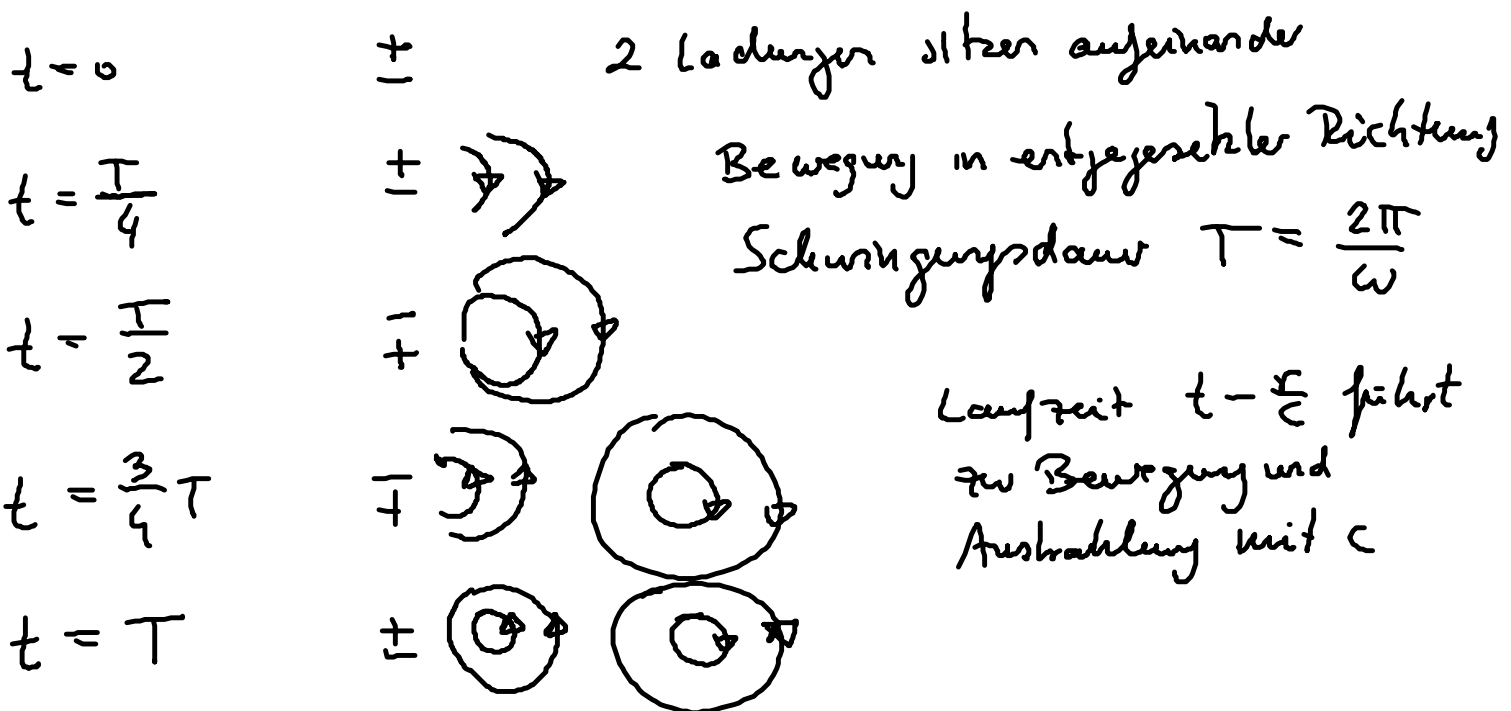 t = 0 ± 2 Ladungen sitzen aufeinander
t = T/4 ± Bewegung in entgegesetzter Richtung
Schwingungsdauer T = 2π/ω
t = T/2 ∓
Laufzeit t - r/c führt
zu Bewegung und
Ausstrahlung mit c
t = 3/4 T ∓
t = T ±